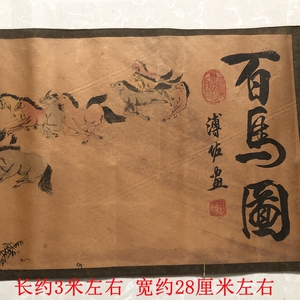 百马图
溥佐画
长约3米左右 宽约28厘米左右